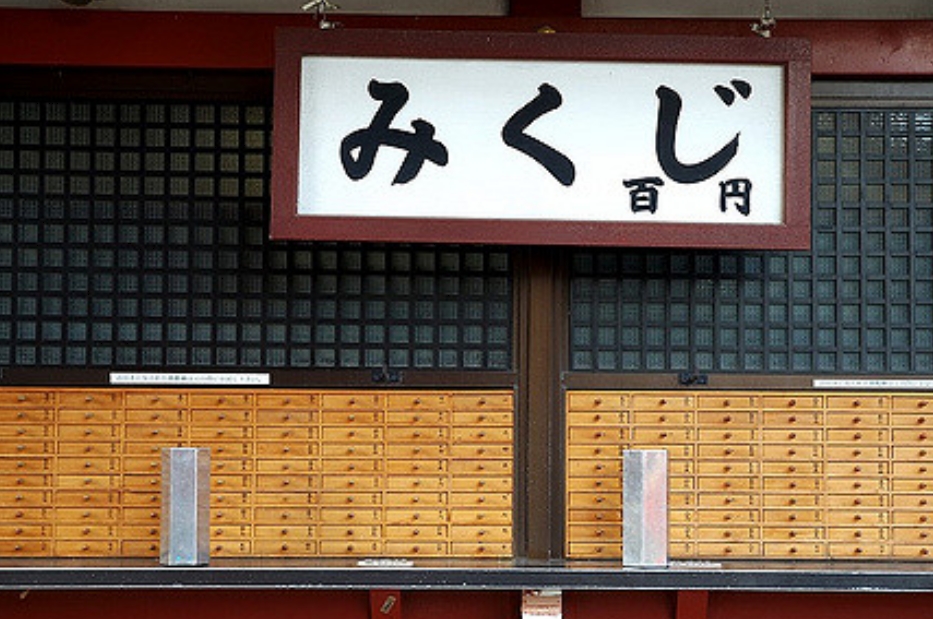 みくじ
百円